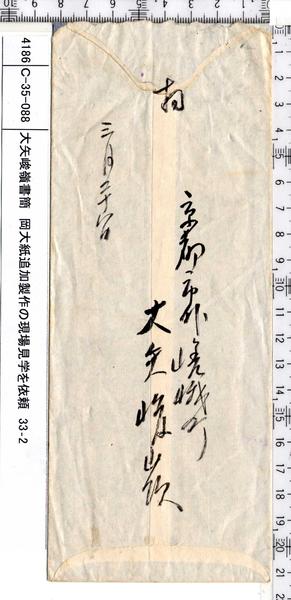 4186 C-35-088 大矢峻嶺書簡 岡大紙追加製作の現場見学を依頼 33-2
京都市外嵯峨町
大矢峻嶺
三月二十日